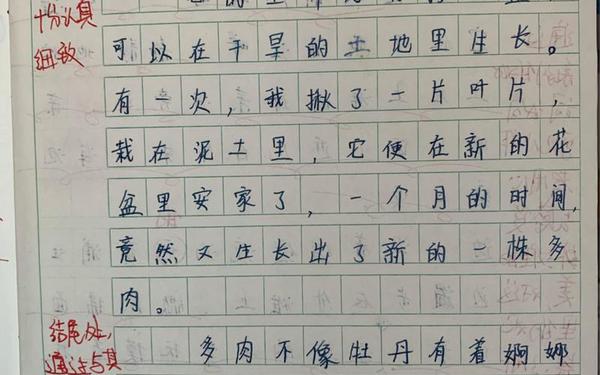 十分认真
细致
可以在干旱的土地里生长。
有一次，我揪了一片叶片，
栽在泥土里，它便在新的花
盆里安家了，一个月的时间，
竟然又生长出了新的一株多
肉。
结尾处，
通过与其
多肉不像牡丹有着婀娜